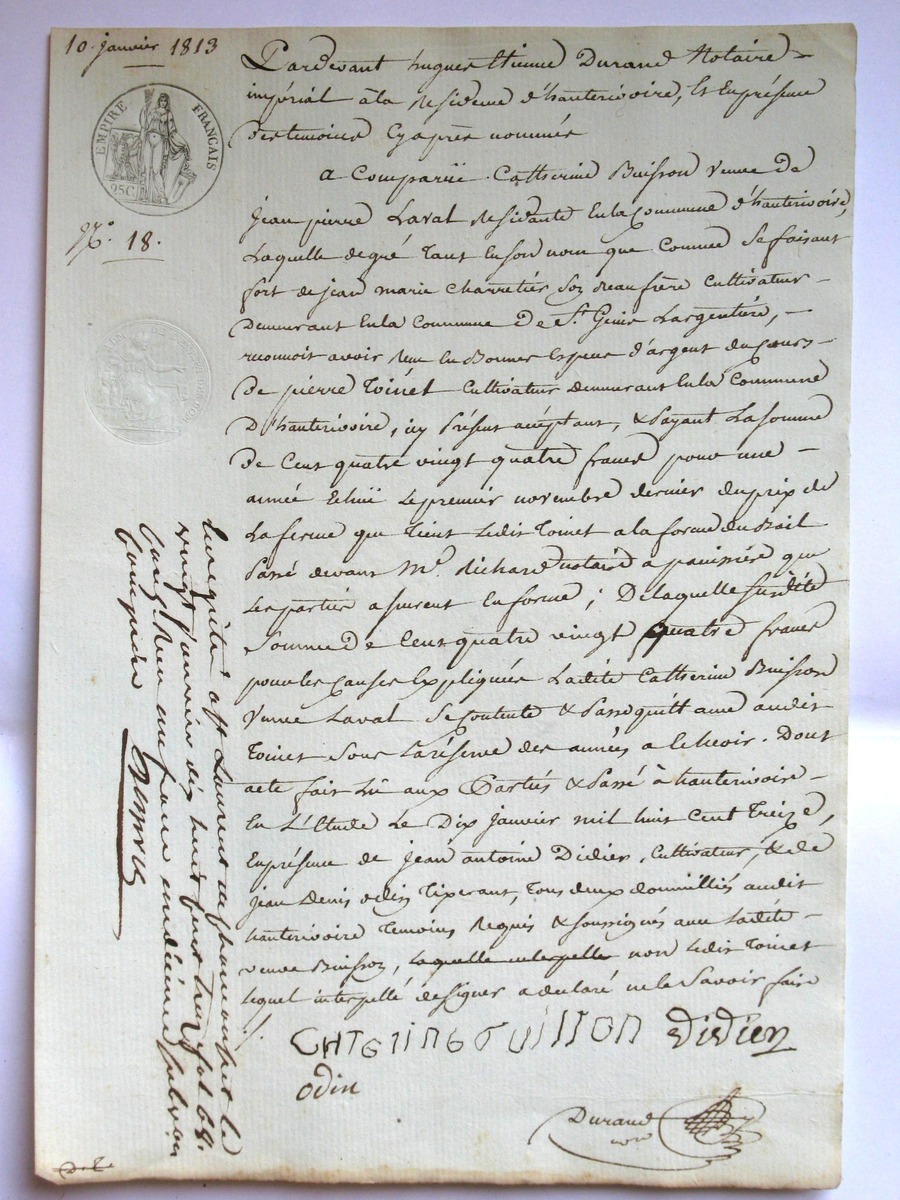 10. janvier 1813
EMPIRE FRANÇAIS
25C.
N.o 18.
Pardevant hugues Etienne Durand Notaire
impérial à la Residence d'hauterivoire, Et En présence
des temoins Cy après nommés
a Comparüe Catherine Buisson Veuve de
Jean pierre Laval Residante En la Commune d'hauterivoire,
Laquelle de gré Tant En son nom que Comme Se faisant
fort de jean marie Charretier Son Beaufrère Cultivateur
demeurant En la Commune De St. Genis Largentière,
reconnoit avoir Reçu En Bonnes Espèces d'argent du Cours
De pierre Toinet Cultivateur demeurant En la Commune
D'hauterivoire, icy Présent acceptant, & Payant La somme
De Cent quatre vingt quatre francs pour une
année Echüe Le premier novembre dernier du prix de
La ferme que Tient Ledit Toinet a la forme du Bail
Passé devant Me. Richard notaire a panissière que
Les parties assurent En forme ; De laquelle susdite
Somme de Cent quatre vingt quatre francs
pour les Causes Expliquées Ladite Catherine Buisson
Veuve Laval Se Contente & Passe quittance audit
Toinet Sous La réserve des années a Echeoir. Dont
acte fait Lû aux Parties & Passé à hauterivoire
En L'Etude Le Dix Janvier mil huit Cent Treize,
En présence de jean antoine Didier, Cultivateur, & de
jean Denis odin Tixerant, Tous deux domiciliés audit
hauterivoire Temoins Requis & soussignés avec Ladite
veuve Buisson, laquelle interpellée non Ledit Toinet
lequel interpellé de signer a declaré ne le Savoir faire
CATERINE BUISSON Didier
odin
Durand
Enregistré a St Laurent de chamousset le
vingt janvier dix huit cent treize fol 68.
Reçu un franc un décime subvon
Comprise